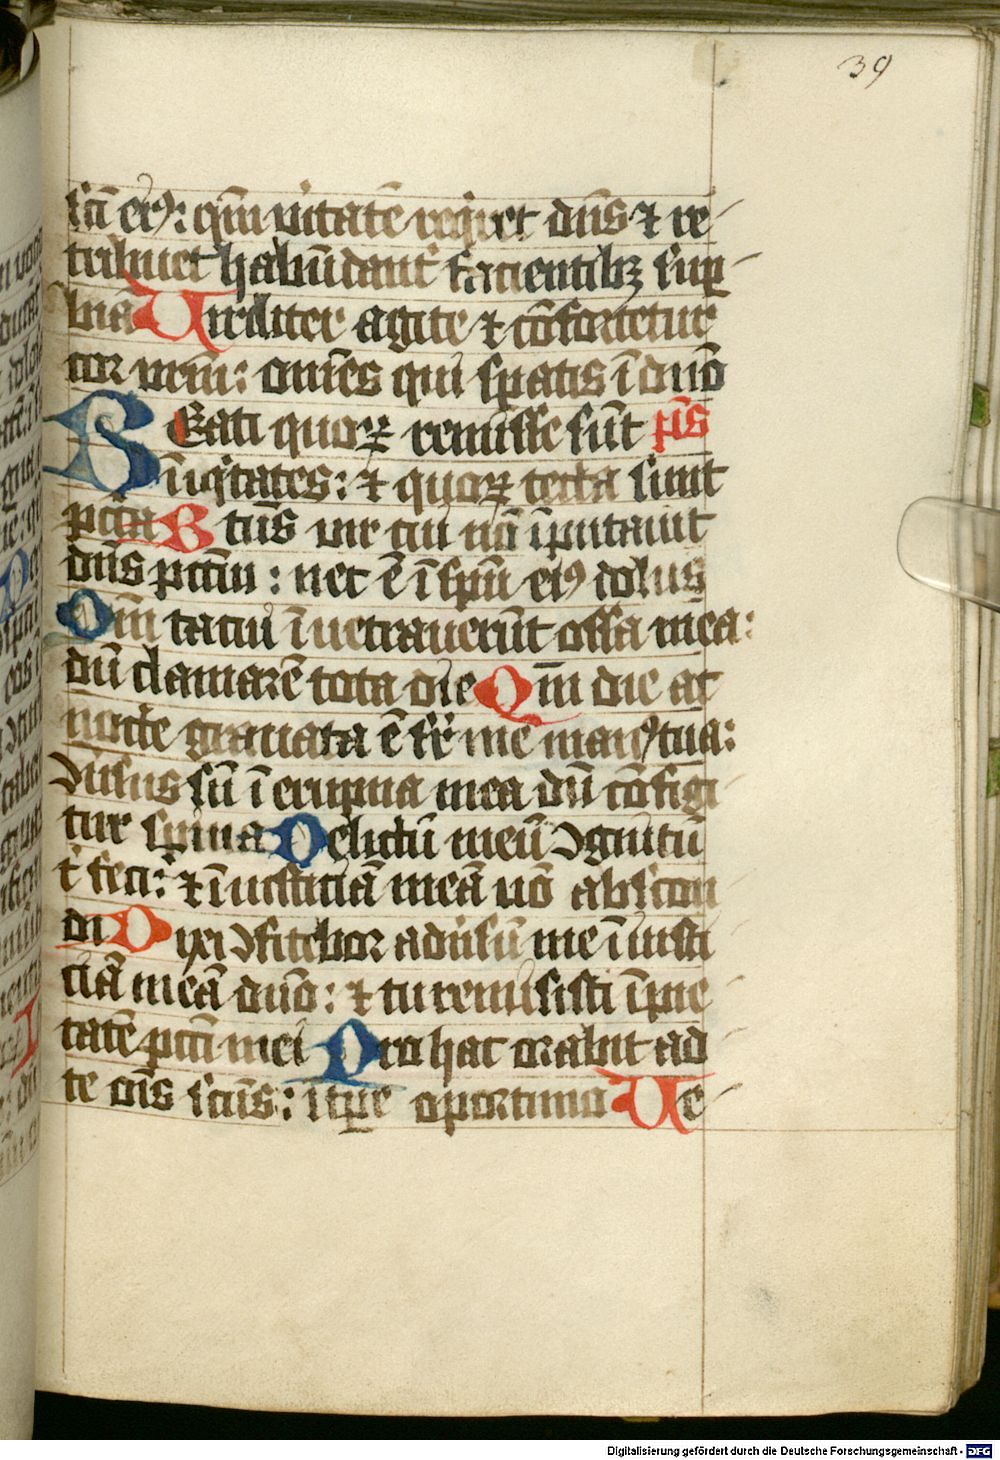 39
scī eiꝰ: qm̄ v̍itatē reqͥret dn̄s ⁊ re
tribuet habūdant̍ facientibꝫ suꝑ
biā Viriliter agite ⁊ cōfortetur
cor vrm̄: om̄es qui spatis ī dn̄o
BEati quoꝝ remisse sūt ps̄
īiqͥtates: ⁊ quoꝝ tecta sunt
pctā Btūs vir cui nō īputauit
dn̄s pctm̄: nec ē ī spū eiꝰ dolus
Qm̄ tacui īuetrauerūt ossa mea:
dū clamarē tota die Qm̄ die ac
nocte grauata ē sr̄ me manꝰ tua:
ↄu̍sus sū ī erūpna mea dū cōfigi
tur spina Delictū meū ↄgnitū
t̍ feci: ⁊ īiusticiā meā nō abscon
di Dixi ↄfitebor adu̍sū me īiusti
ciā meā dn̄o: ⁊ tu remisisti īpie
tatē pctī mei Pro hac orabit ad
te om̄s scūs: ī tꝑe oportuno Ve
Digitalisierung gefördert durch die Deutsche Forschungsgemeinschaft - DFG